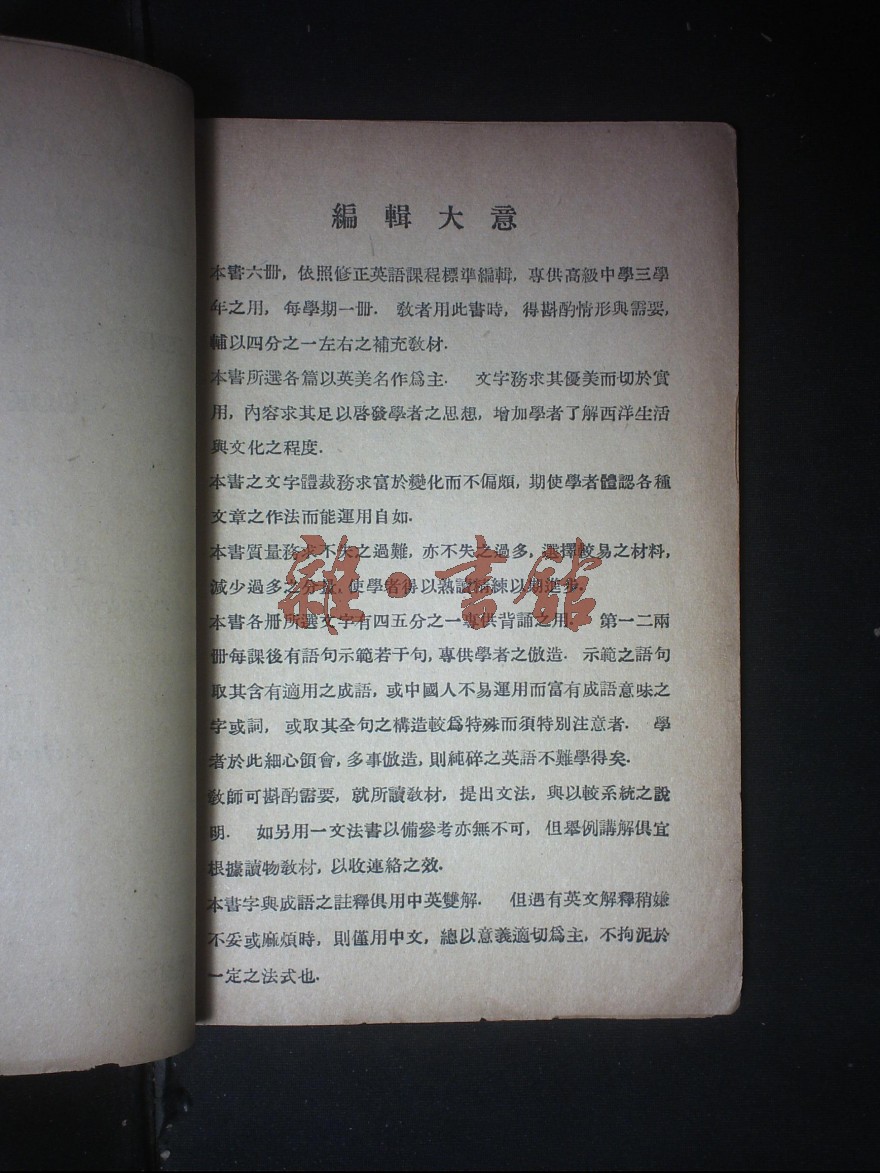 編輯大意
本書六冊，依照修正英語課程標準編輯，專供高級中學三學
年之用，每學期一冊．教者用此書時，得斟酌情形與需要，
輔以四分之一左右之補充教材．
本書所選各篇以英美名作爲主．文字務求其優美而切於實
用，內容求其足以啓發學者之思想，增加學者了解西洋生活
與文化之程度．
本書之文字體裁務求富於變化而不偏頗，期使學者體認各種
文章之作法而能運用自如．
本書質量務求不失之過難，亦不失之過多，選擇較易之材料，
減少過多之分量，使學者得以熟讀精練以期進步．
本書各册所選文字有四五分之一專供背誦之用．第一二兩
冊每課後有語句示範若干句，專供學者之倣造．示範之語句
取其含有適用之成語，或中國人不易運用而富有成語意味之
字或詞，或取其全句之構造較爲特殊而須特別注意者．學
者於此細心領會，多事倣造，則純碎之英語不難學得矣．
教師可斟酌需要，就所讀教材，提出文法，與以較系統之說
明．如另用一文法書以備參考亦無不可，但舉例講解俱宜
根據讀物教材，以收連絡之效．
本書字與成語之註釋俱用中英雙解．但遇有英文解釋稍嫌
不妥或麻煩時，則僅用中文，總以意義適切爲主，不拘泥於
一定之法式也．
雜·書館